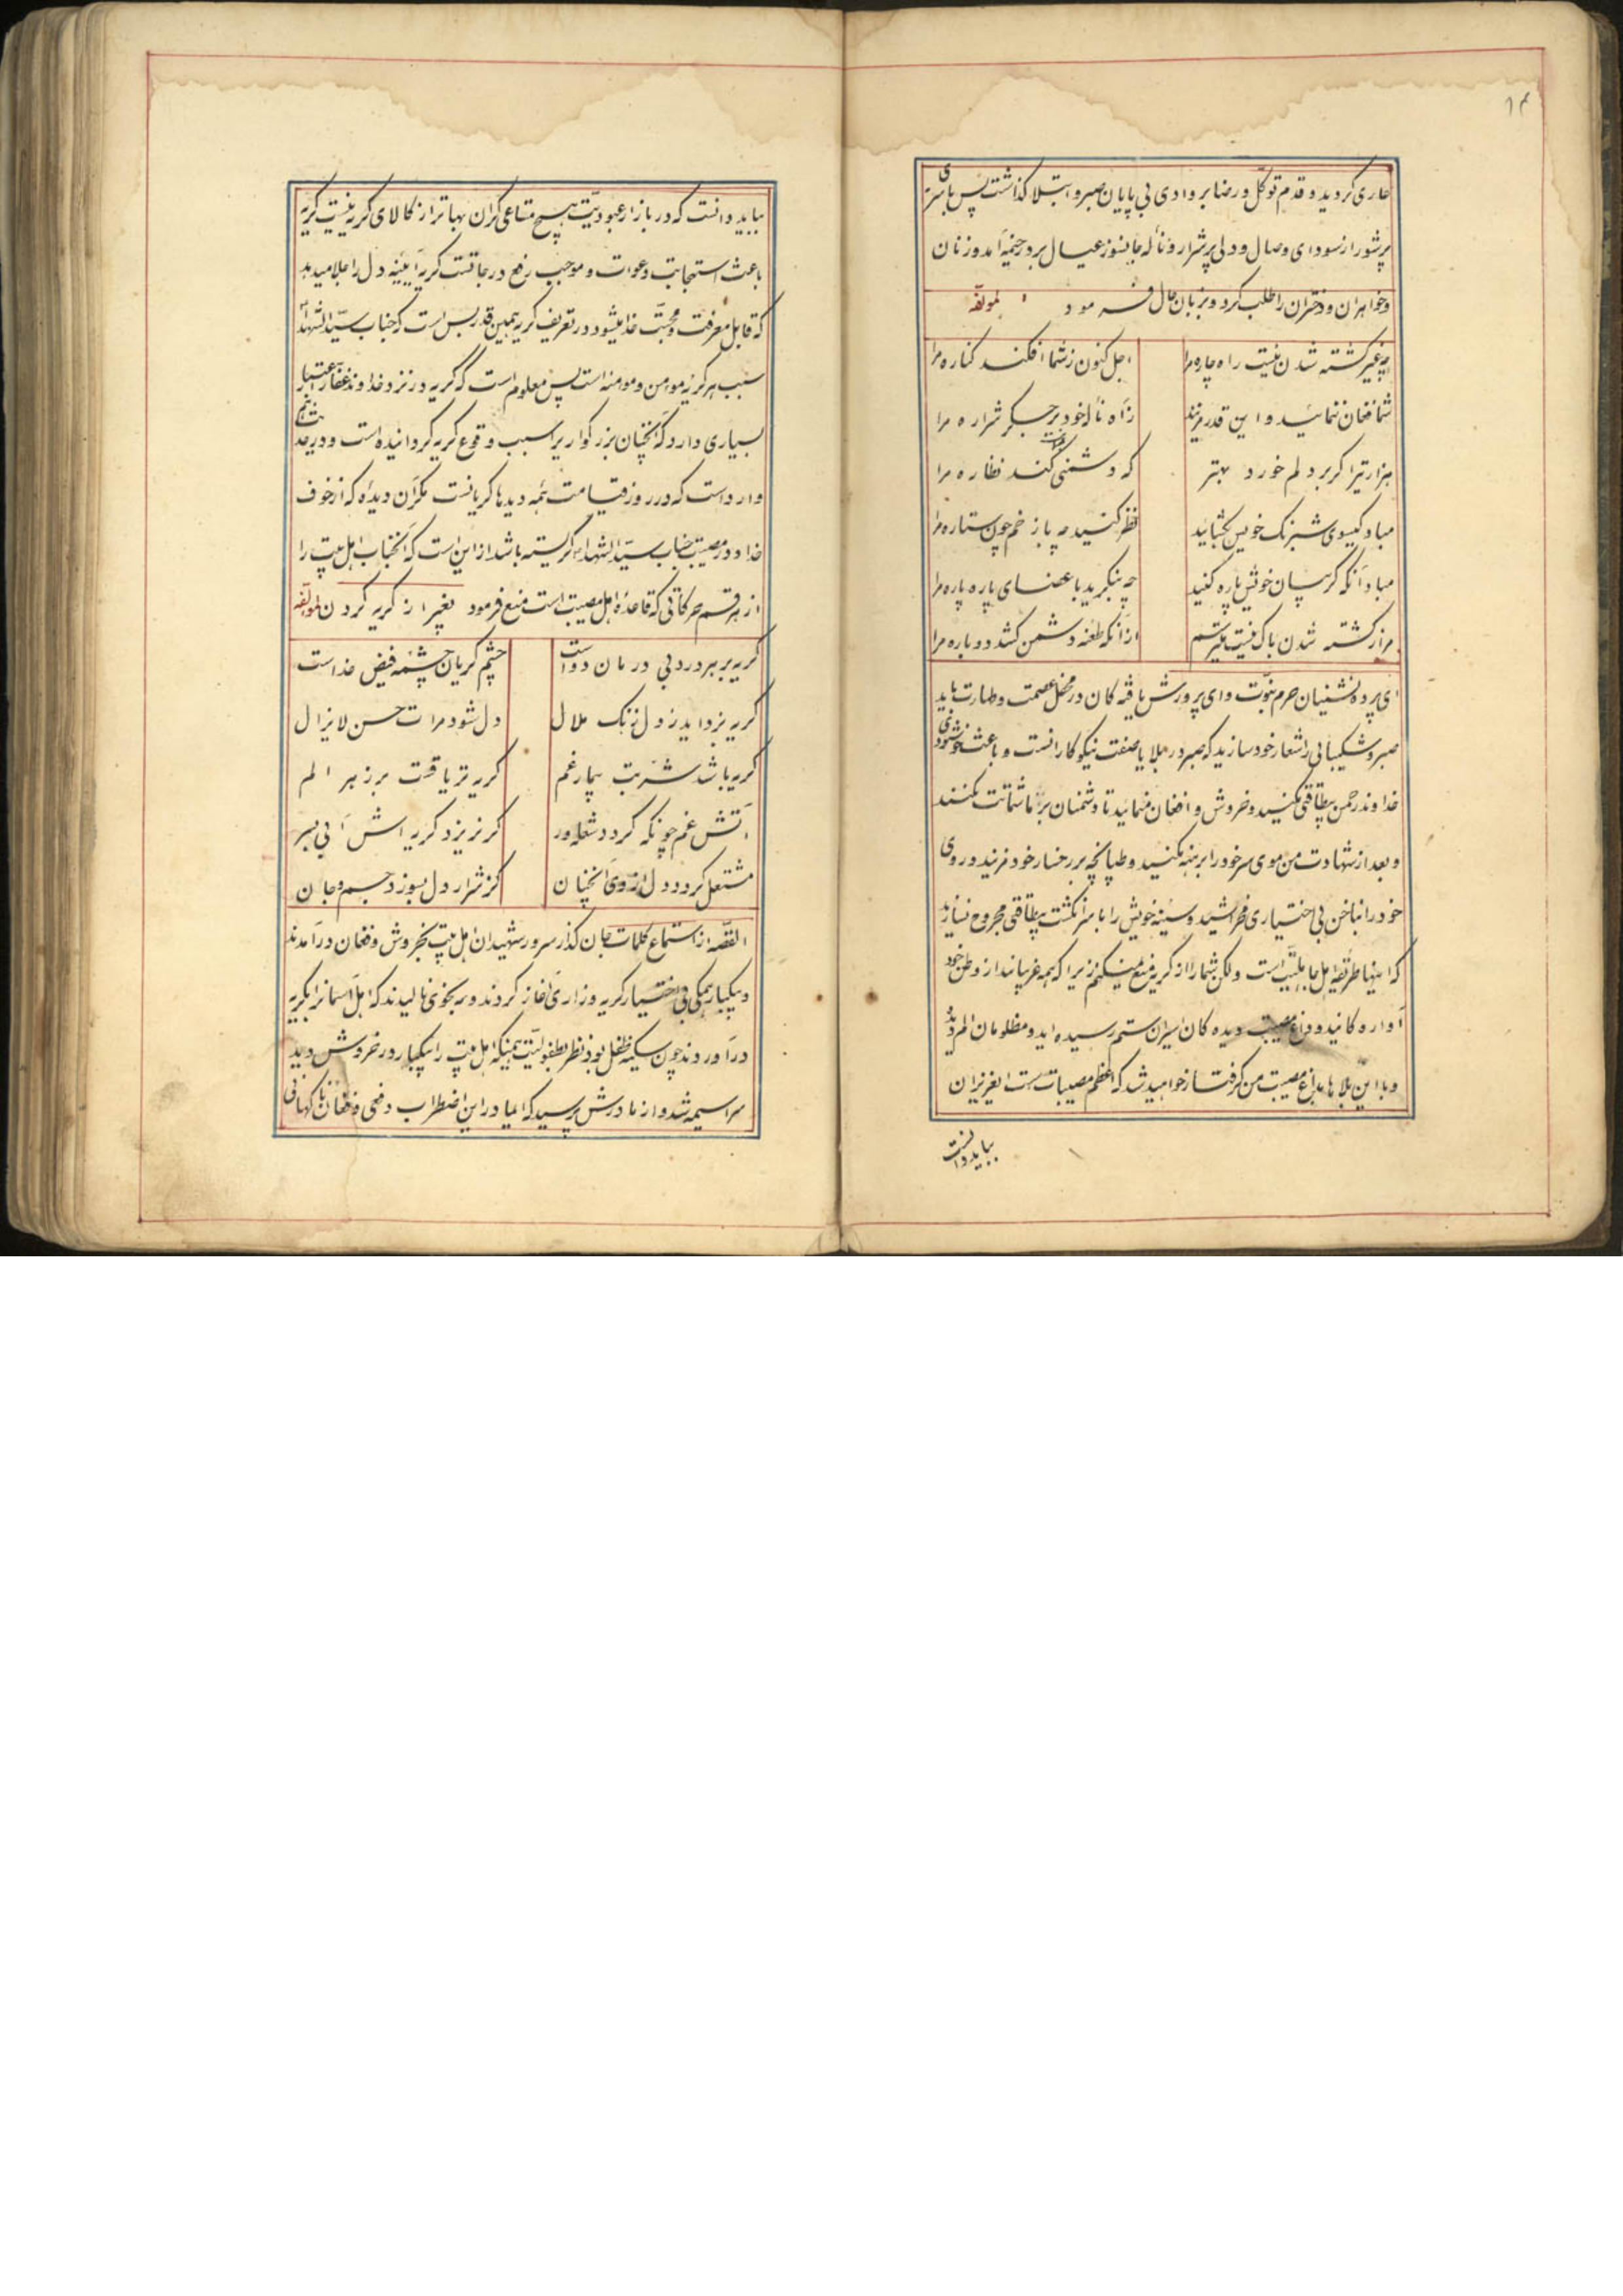 ۱۴
جاری کردید و قدم توکّل و رضا بر وادی بی پایان صبر و ابتلا گذاشت پس با سری
پرشور از سودای وصال و دلی پرشرار و ناله جانسوز عیال بر در خیمه آمد و زنان
و خواهران و دختران را طلب کرد و بزبان حال فرمود لمولفه
بغیر کشته شدن نیست راه چاره مرا
اجل کنون ز شما افکند کناره مرا
شما فغان ننمائید و این قدر مزنید
ز آه و ناله خود بر جگر شراره مرا
هزار تیر اگر بر دلم خورد بهتر
که دشمنی کند نظاره مرا
مباد گیسوی شبرنگ خویش بگشائید
نظر کنید چه با زخم چون ستاره مرا
مباد آنکه گریبان خویش پاره کنید
چه بنگرید با عضای پاره پاره مرا
مرا ز کشته شدن باک نیست میترسم
از آنکه طعنه دشمن کشد دوباره مرا
ای پرده نشینان حرم نبوّت و ای پرورش یافته کان در محفل عصمت و طهارت باید
صبر و شکیبائی را شعار خود سازید که صبر در بلایا صفت نیکوکارانست و باعث خوشنودی
خداوند رحمن بیطاقتی مکنید و خروش و افغان منمائید تا دشمنان بر ما شماتت نکنند
و بعد از شهادت من موی سر خود را برهنه مکنید و طپانچه بر رخسار خود مزنید و روی
خود را بناخن بی اختیاری مخراشید و سینه خویش را با سر انگشت بیطاقتی مجروح نسازید
که اینها طریقه اهل جاهلیّت است و لکن شما را از گریه منع نمیکنم زیرا که همه غریبانید از وطن خود
آواره کانید و داغ مصیبت دیده کان اسیران ستم رسیده اید و مظلومان
و با این بلاها بداغ مصیبت من گرفتار خواهید شد که اعظم مصیبات است ایعزیزان
بباید دانست
بباید دانست که در بازار عبودیّت هیچ متاعی گران بهاتر از کالای گریه نیست گریه
باعث استجابت دعوات و موجب رفع درجاتست گریه آیینه دل را جلا میدهد
که قابل معرفت و محبّت خدا میشود در تعریف گریه همین قدر بس است که جناب سیّد الشهداء
سبب هر گریه مومن و مومنه است پس معلوم است که گریه در نزد خداوند غفّار اعتبار
بسیاری دارد که آنچنان بزرگواریرا سبب وقوع گریه گردانیده است و در حدیث هم
وارد است که در روز قیامت همه دیدها گریانست مگر آن دیده که از خوف
خدا و در مصیبت جناب سیّد الشهداء گریسته باشد از این است که آنجناب اهل بیت را
از هر قسم حرکاتی که قاعده اهل مصیبت است منع فرمود بغیر از گریه کردن لمولفه
گریه بر هر درد بی درمان دواست
چشم گریان چشمه فیض خداست
گریه بزداید ز دل زنگ ملال
دل شود مرات حسن لایزال
گریه باشد شربت بیمار غم
گریه تریاقست بر زهر الم
آتش غم چونکه گردد شعله ور
گر نریزد گریه اش آبی بسر
مشتعل گردد دل از وی آنچنان
کز شرار دل بسوزد جسم و جان
القصّه از استماع کلمات جان گداز سرور شهیدان اهل بیت بخروش و فغان در آمدند
و یکبار همگی بی اختیار گریه و زاری آغاز کردند و بنحوی نالیدند که اهل آسمانرا بگریه
در آوردند چون سکینه طفل بود نظر بطفولیّت همینکه اهل بیت را یکبار در خروش دید
سراسیمه شد و از مادرش پرسید که ایمادر این اضطراب دفعی و فغان ناگهانی